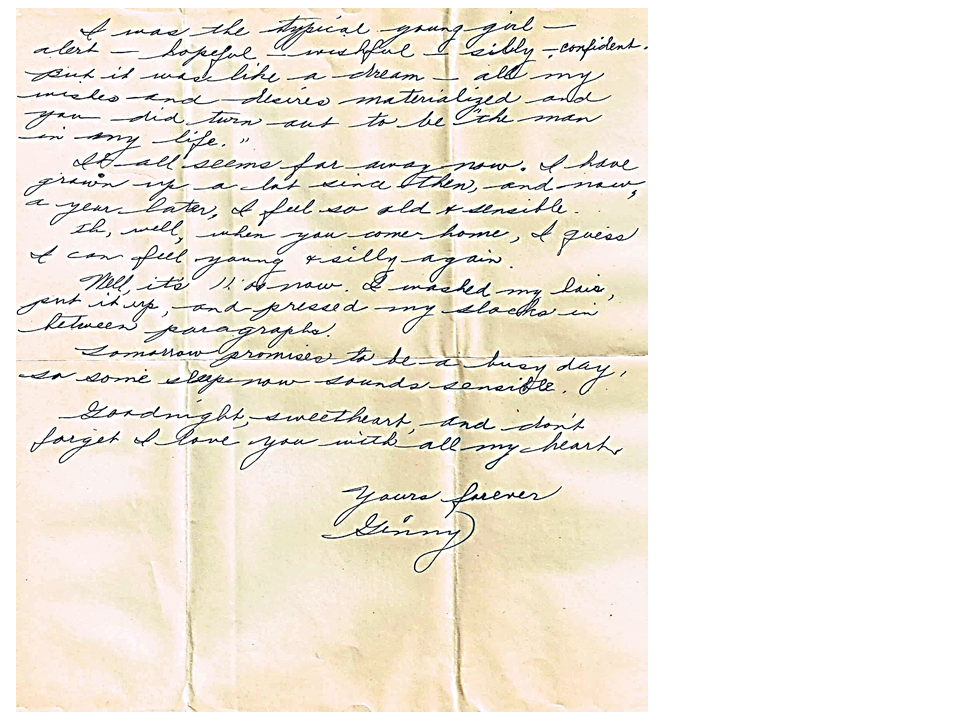 I was the typical young girl —
alert — hopeful — wishful — silly — confident.
But it was like a dream — all my
wishes and desires materialized and
you did turn out to be "the man
in my life."
It all seems far away now. I have
grown up a lot since then, and now,
a year later, I feel so old & sensible.
Oh, well, when you come home, I guess
I can feel young & silly again.
Well, it's 11:00 now. I washed my hair,
put it up, and pressed my slacks in
between paragraphs.
Tomorrow promises to be a busy day,
so some sleep now sounds sensible.
Goodnight, sweetheart, and don't
forget I love you with all my heart.
Yours forever
Ginny